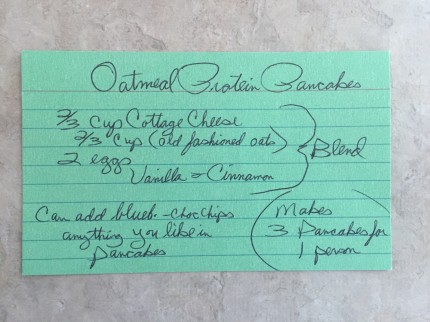 Oatmeal Protein Pancakes
2/3 cup Cottage Cheese
2/3 cup (old fashioned oats)
2 eggs
Vanilla & Cinnamon
Blend
Can add blueb. - choc chips
anything you like in
pancakes
Makes
3 Pancakes for
1 person